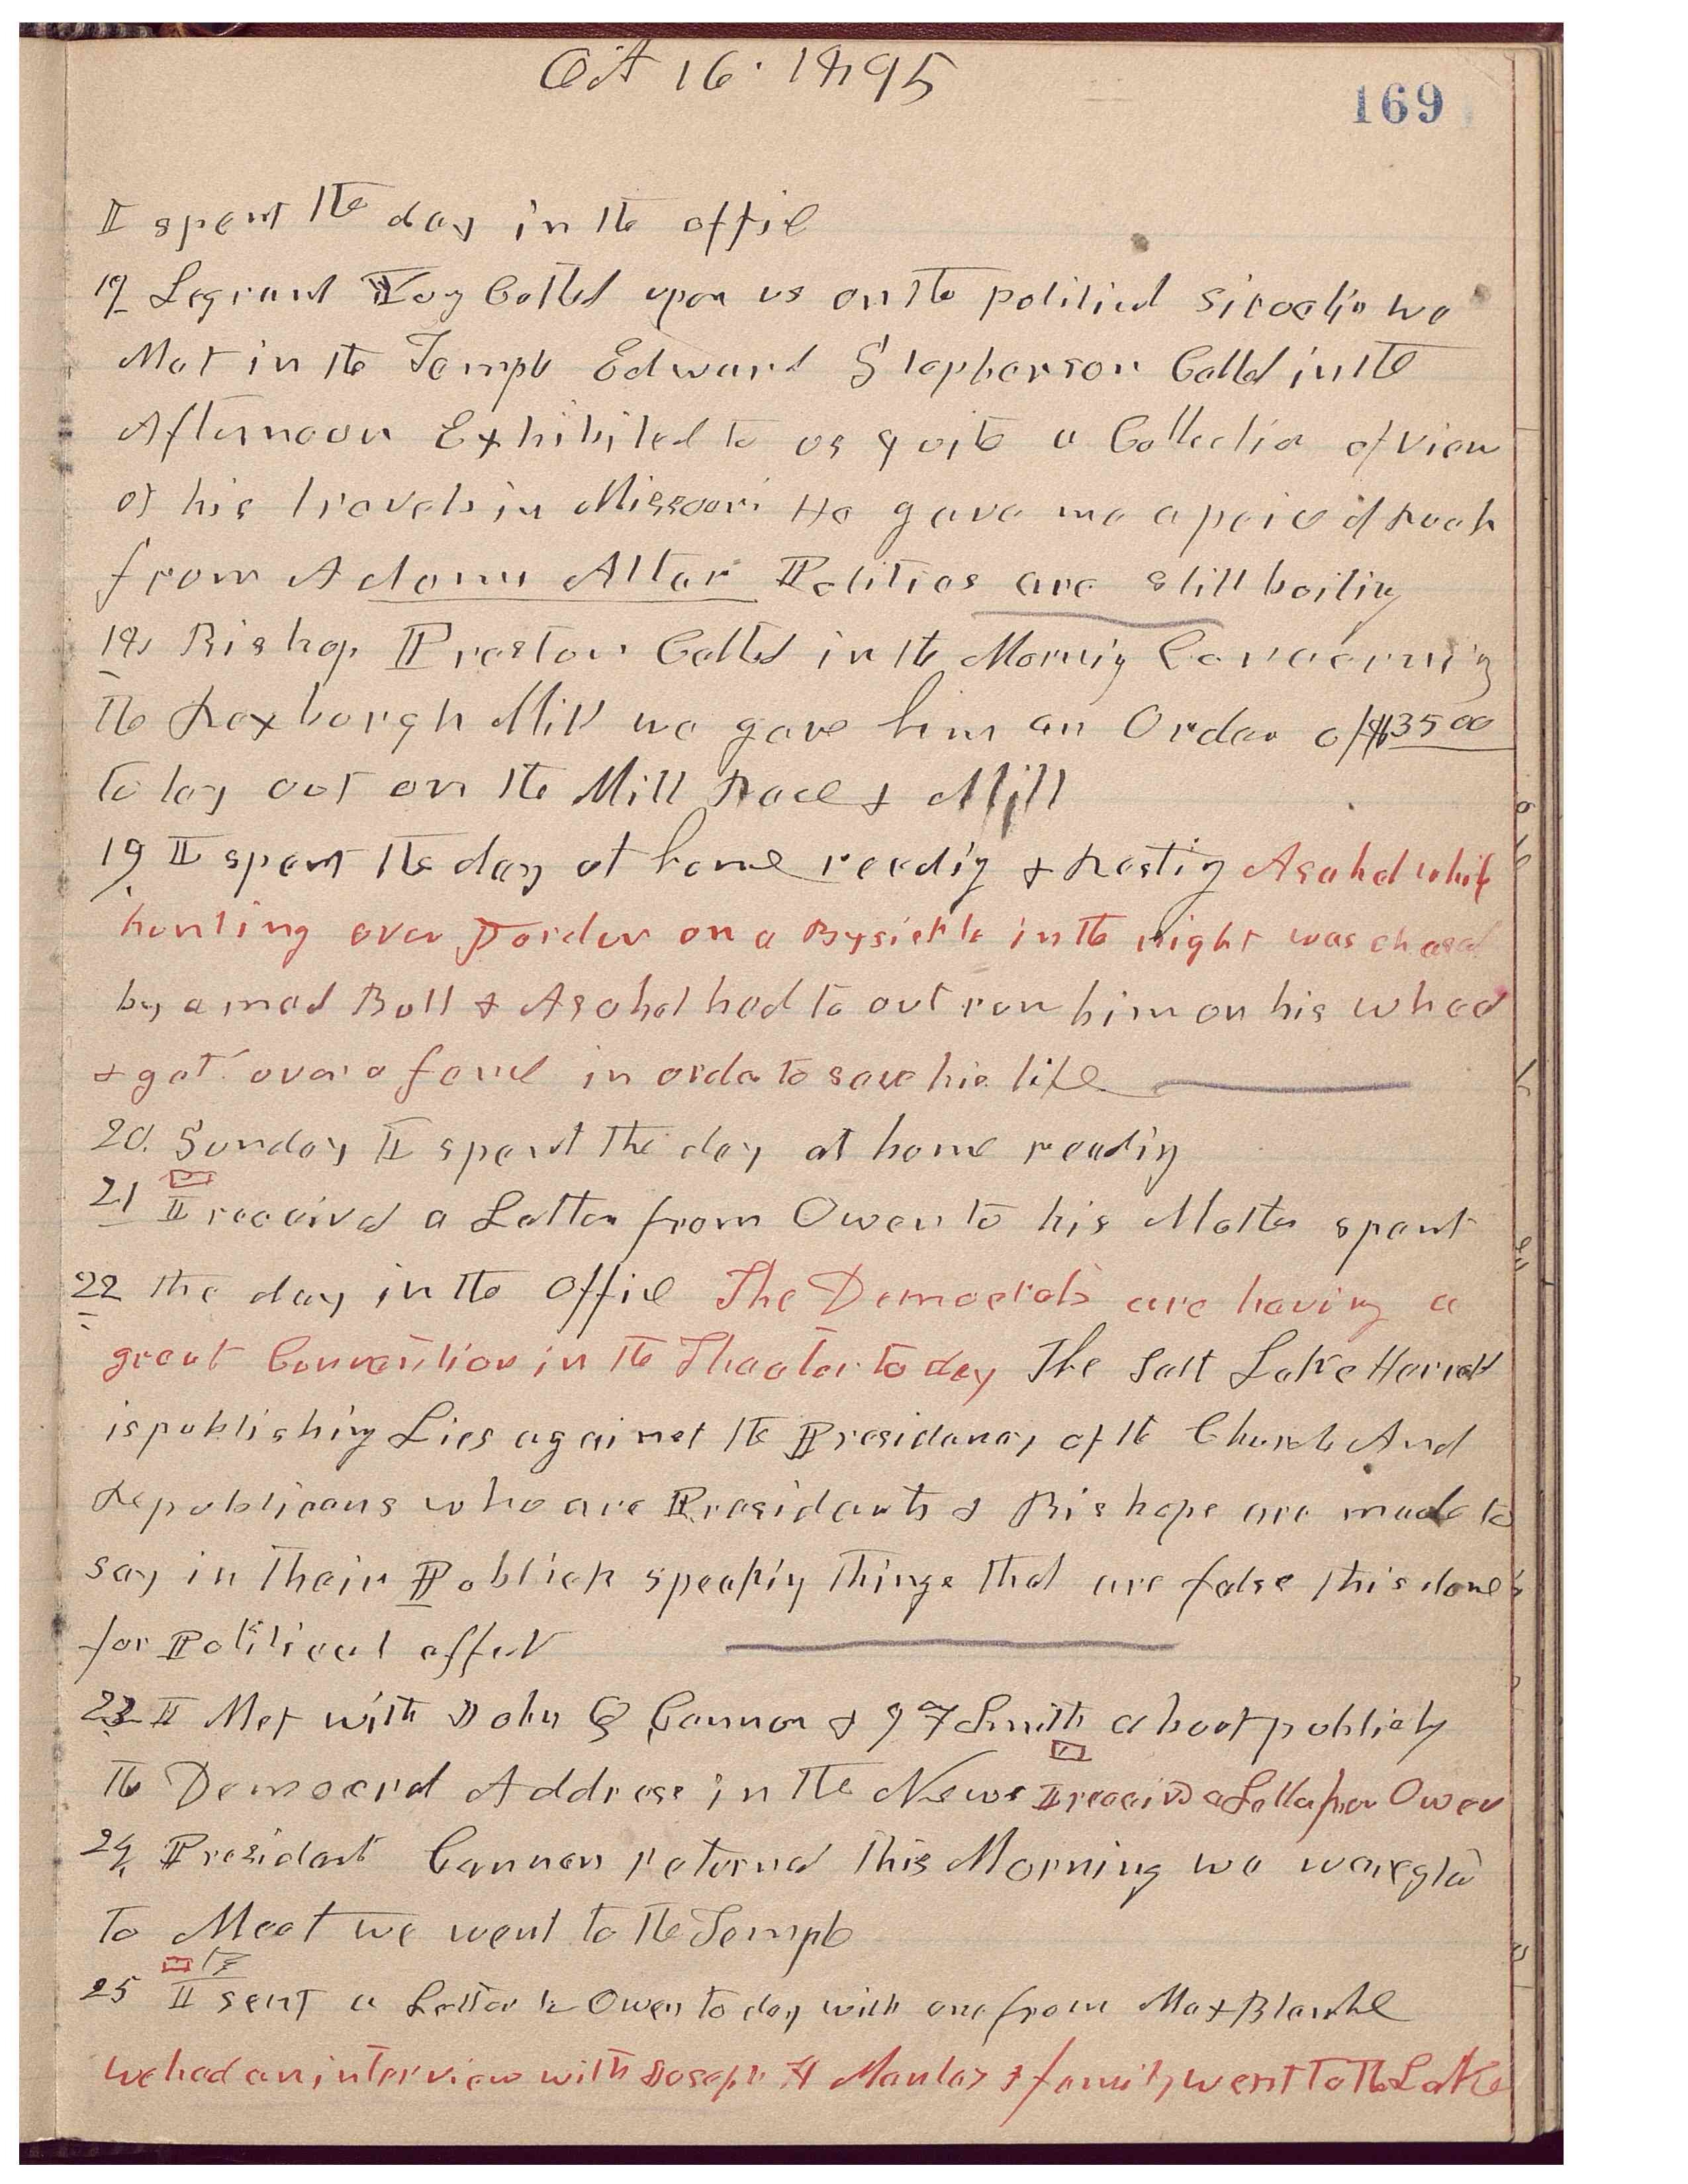 Oct 16. 1895
169
I spent the day in the office
17 Legrand Young Called upon us on the political situation we
Met in the Temple Edward Stepherson Called in the
Afternoon Exhibited to us quite a Collection of view
of his travels in Missouri He gave me a peice of Rock
from Adams Altar Polities are still boiling
18 Bishop Preston Called in the Morning Concerning
the Roxborgh Mill we gave him an Order of $3500
to lay out on the Mill Race & Mill
19 I spent the day at home reeding & Resting Asahel while
hunting over Jordon on a Bysickle in the night was chased
by a mad Bull & Asahel had to out run him on his wheel
& got over a fence in order to save his life
20. Sunday I spent the day at home reading
21 I received a Letter from Owen to his Mother spent
22 the day in the office The Democrats are having a
great Convention in the Theater to day The Salt Lake Herald
is publishing Lies against the Presidency of the Church And
Republicans who are Presidents & Bishops are made to
say in their Publick speaking things that are false this done
for Political effect
23 I Met with John Q Cannon & J F Smith about publicly
the Democrat Address in the News I receivd a Letter from Owen
24 President Cannon returnd this Morning we were glad
to Meet we went to the Temple
25 I sent a Letter to Owen to day with one from Ma & Blanche
We had an interview with Joseph H Manley & family went to the Lake